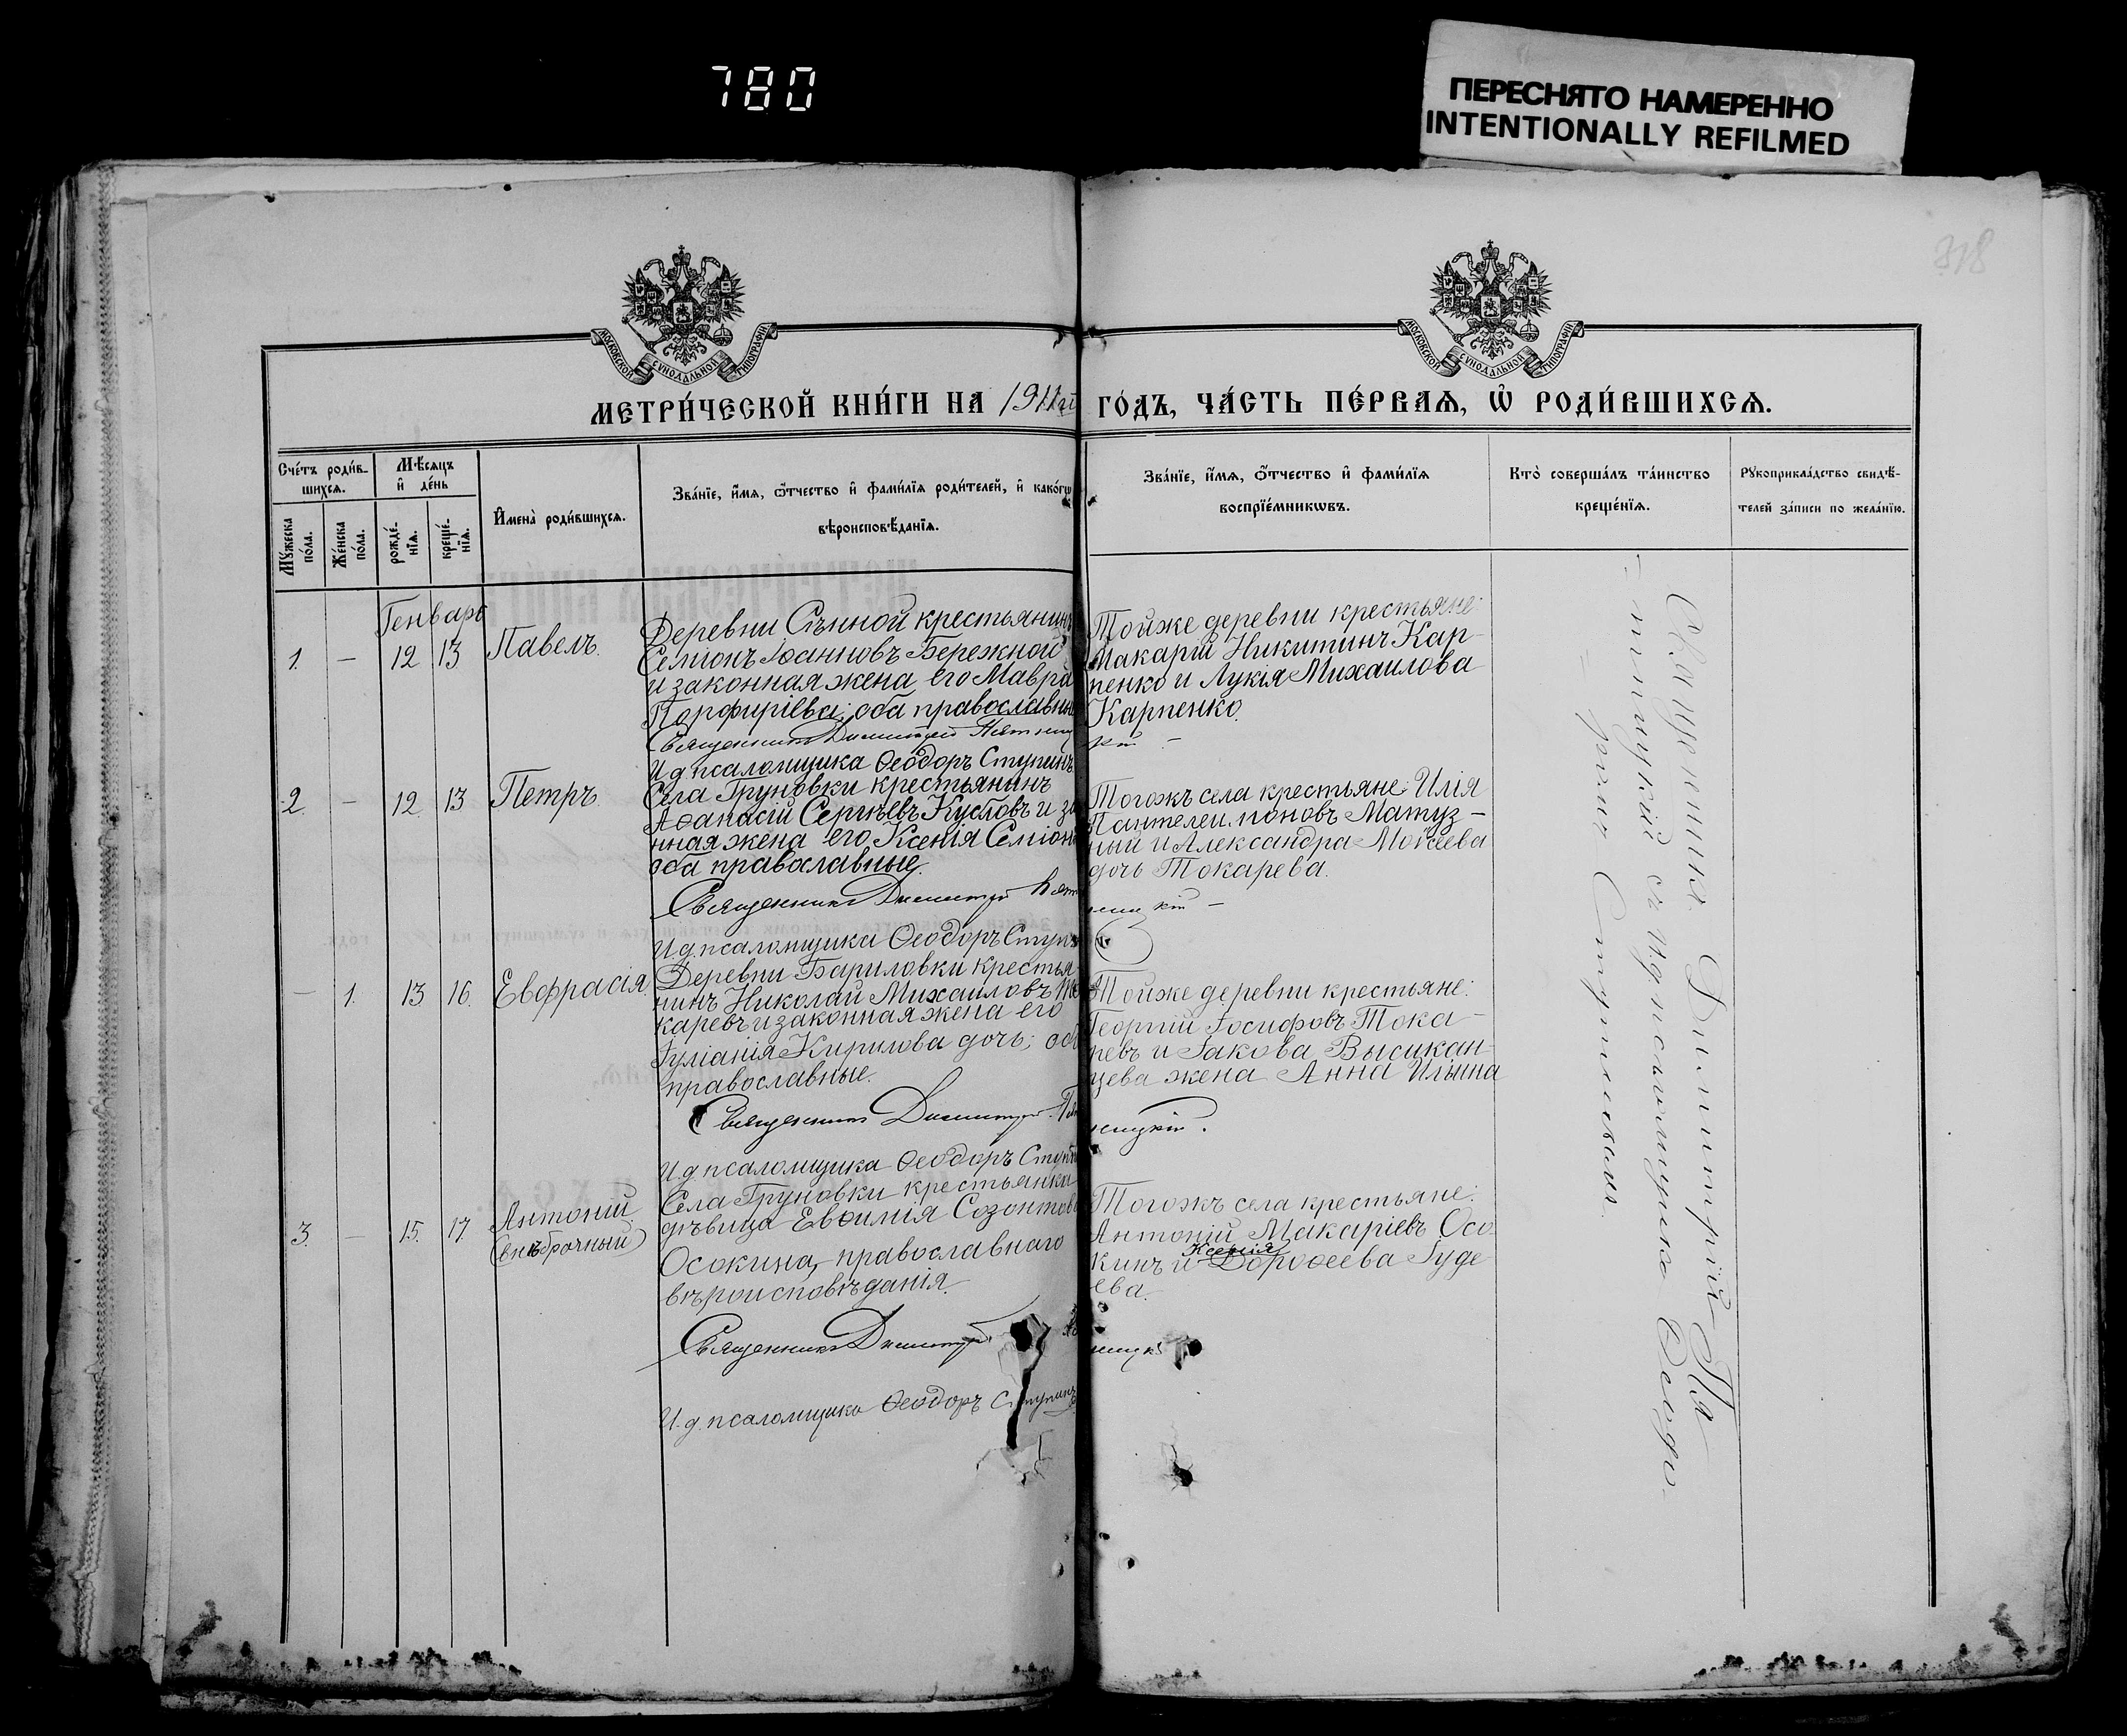 780
ПЕРЕСНЯТО НАМЕРЕННО
INTENTIONALLY REFILMED
318
МОСКОВСКОЙ СѴНОДАЛЬНОЙ ТИПОГРАФІИ
МОСКОВСКОЙ СѴНОДАЛЬНОЙ ТИПОГРАФІИ
МЕТРИ́ЧЕСКОЙ КНИ́ГИ НА 1911й
ГО́ДЪ, ЧА́СТЬ ПЕ́РВАѦ, Ѡ҆ РОДИ́ВШИХСѦ.
Сче́тъ роди́в-
шихсѧ.
Мѣ́сѧцъ
и҆ де́нь
Мꙋ́жеска
по́ла.
Же́нска
по́ла.
рожде́-
нїѧ.
креще́-
нїѧ.
И҆мена̀ роди́вшихсѧ.
Зва́нїе, и҆́мѧ, ѻ҆́тчество и҆ фами́лїѧ роди́телей, и҆ како́гѡ
вѣроисповѣ́данїѧ.
Зва́нїе, и҆́мѧ, ѻ҆́тчество и҆ фами́лїѧ
воспрїе́мникѡвъ.
Кто̀ соверша́лъ та́инство
креще́нїѧ.
Рꙋкоприкла́дство свидѣ́-
телей за́писи по жела́нїю.
Генварь
1. — 12 13 Павелъ.
Деревни Сѣнной крестьянинъ
Семіонъ Іоанновъ Бережной
и законная жена его Мавра
Порфиріева; оба православные
Священникъ Димитрій Пятниц
И.д. псаломщика Ѳеодоръ Ступинъ
Тойже деревни крестьяне:
Макарій Никитинъ Кар-
пенко и Лукія Михаилова
Карпенко.
кій —
2. — 12 13 Петръ
Села Груновки крестьянинъ
Аѳанасій Сергѣевъ Кустовъ и за
нная жена его Ксенія Семіон
оба православные.
Священникъ Димитрій Пят
И.д. псаломщика Ѳеодоръ Ступи
Тогожъ села крестьяне: Илія
Пантелеимоновъ Матуз-
ный и Александра Мойсеева
дочь Токарева.
ницкій —
— 1. 13 16. Евфрасія
Деревни Бариловки крестья
нинъ Николай Михаиловъ То
каревъ и законная жена его
Іуліанія Кирилова дочь; оба
православные.
Священникъ Димитрій Пят
И.д. псаломщика Ѳеодоръ Ступи
Тойже деревни крестьяне:
Георгій Іосифовъ Тока-
ревъ и Іакова Высикан-
цева жена Анна Ильина
ницкій.
3. — 15. 17. Антоній
(внѣбрачный)
Села Груновки крестьянка
дѣвица Евѳимія Созонтова
Осокина, православнаго
вѣроисповѣданія.
Священникъ Димитрій
И.д. псаломщика Ѳеодоръ Ступинъ
Тогожъ села крестьяне:
Антоній Макаріевъ Осо-
Ксенія
кинъ и Дороѳеева Гуде
ева.
ницк
Священникъ Димитрій Пя
тницкій съ И.д. псаломщика Ѳеодо-
ромъ Ступинымъ.